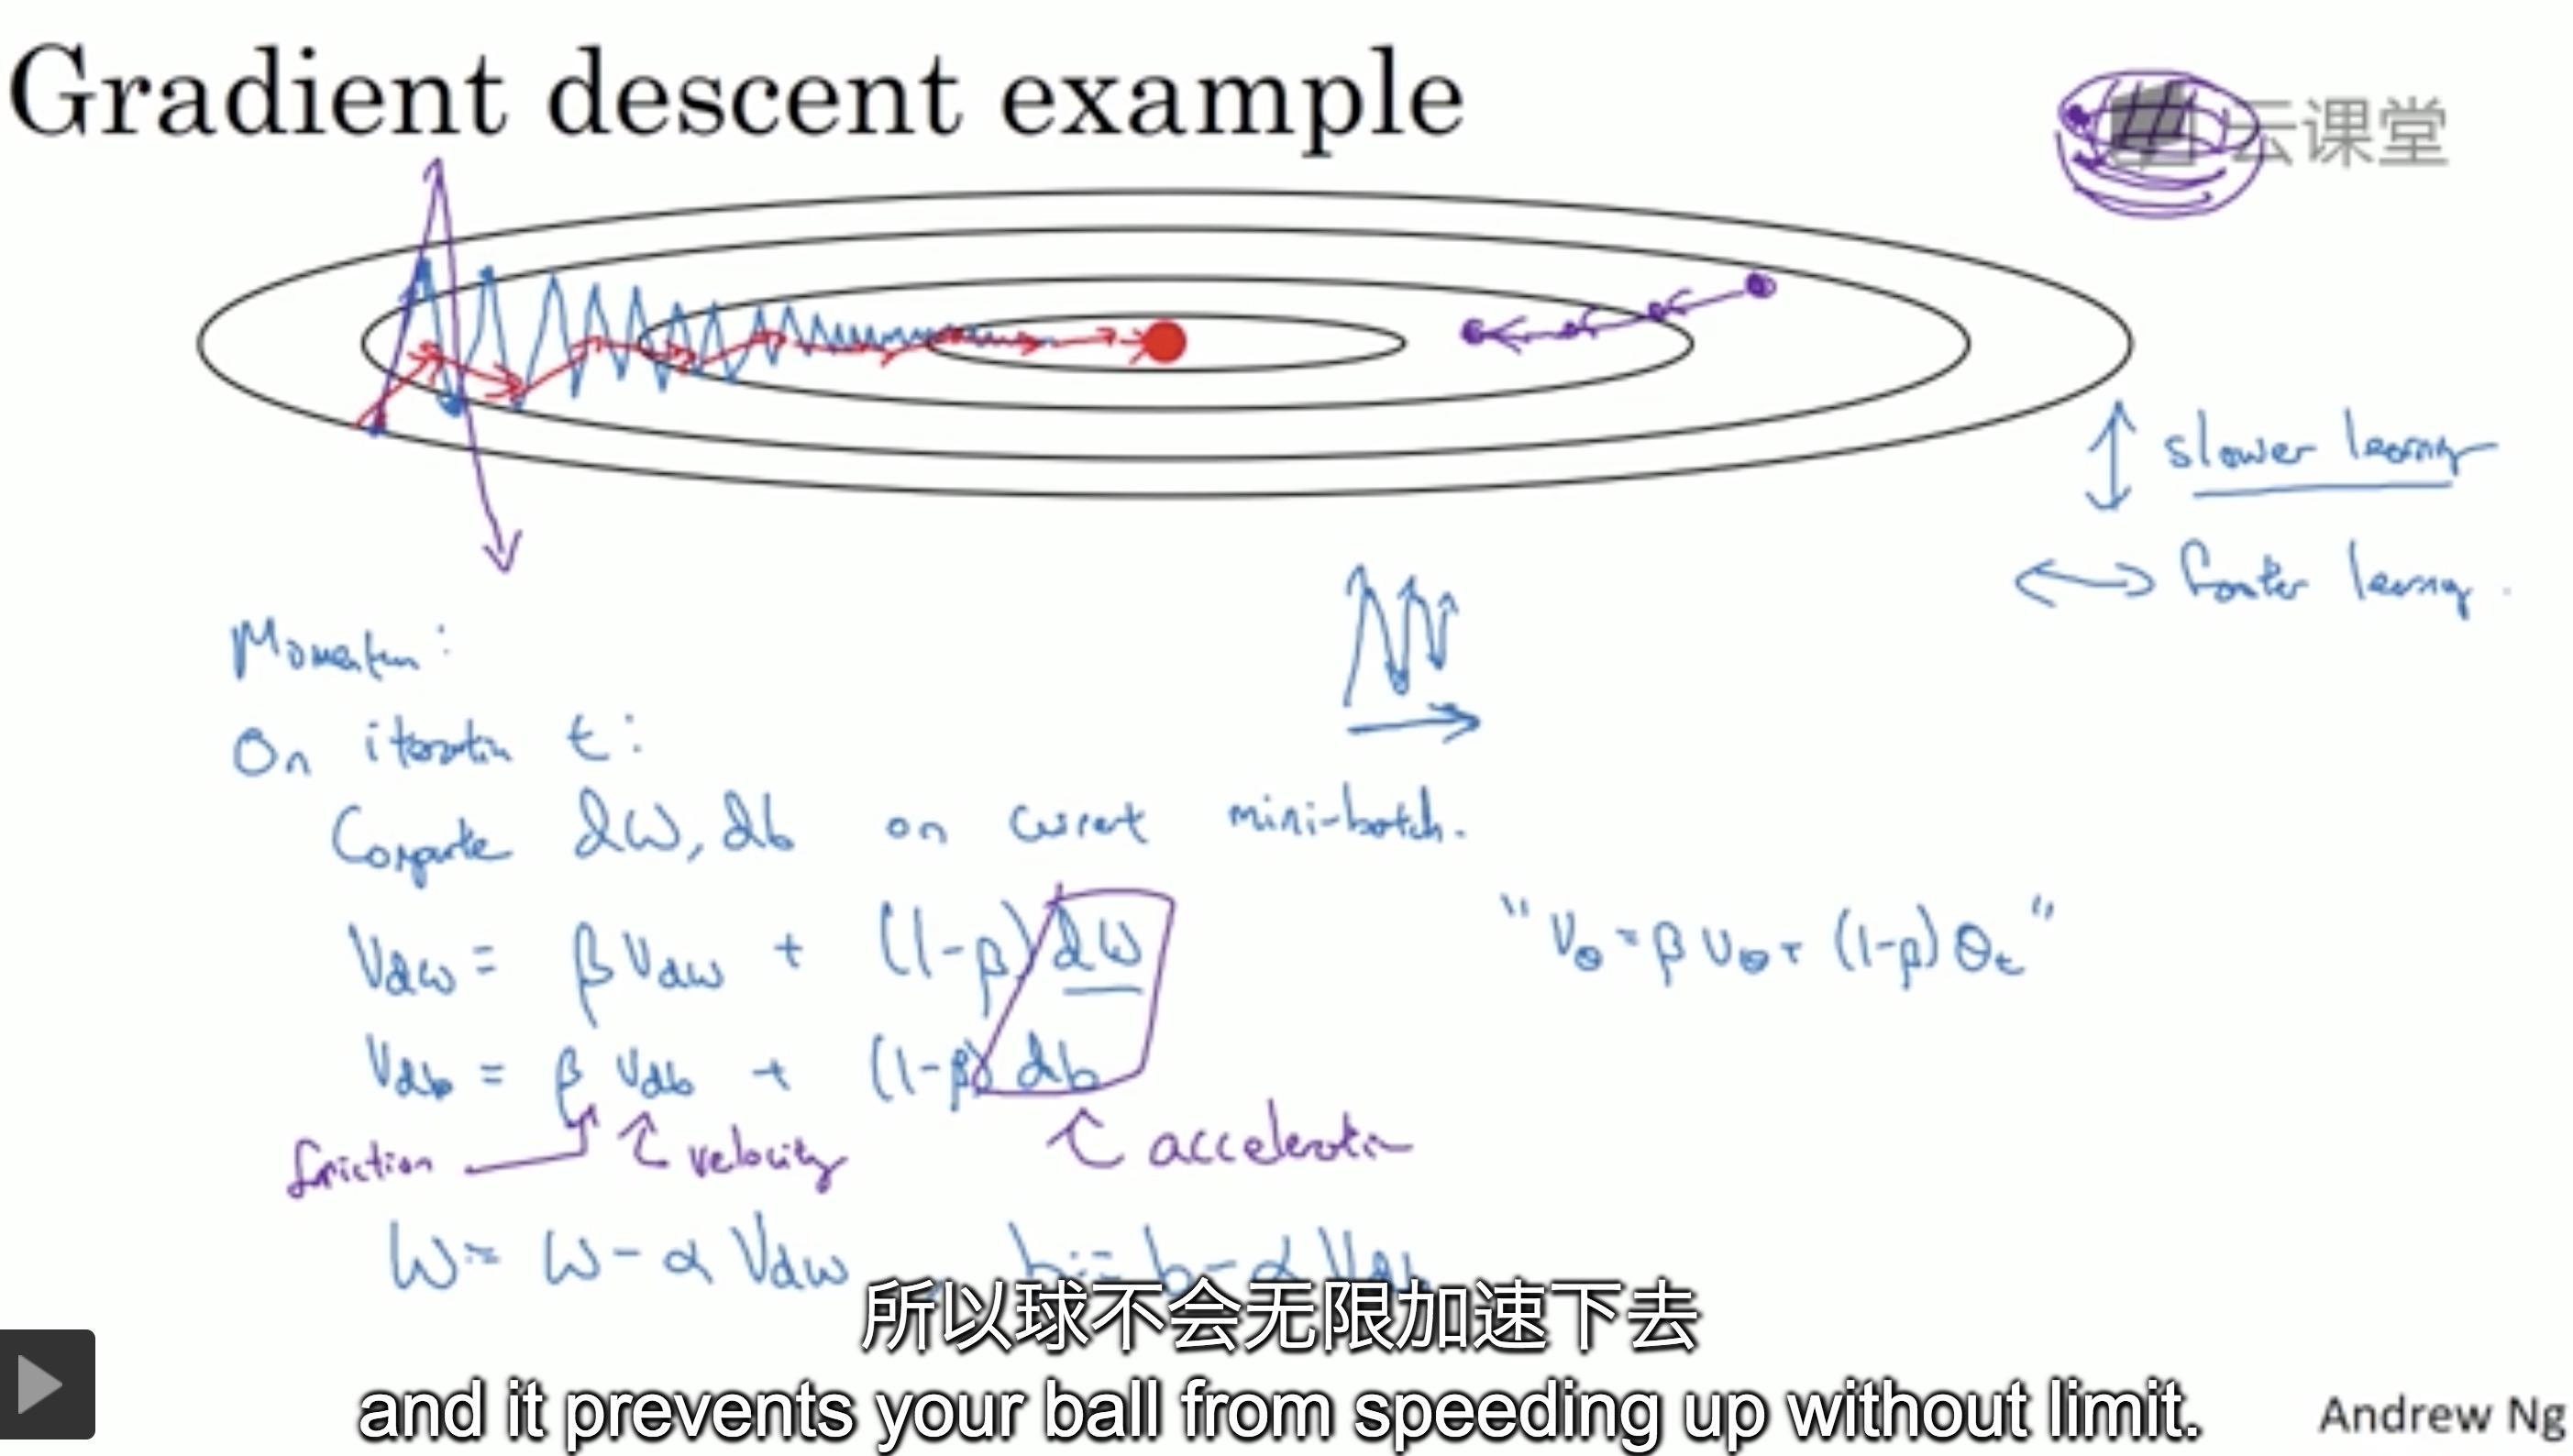 Gradient descent example
云课堂
slower learning
faster learning.
Momentum:
On iteration t:
Compute dW, db on current mini-batch.
Vdw = β Vdw + (1-β) dW
"Vθ = β Vθ + (1-β) θt"
Vdb = β Vdb + (1-β) db
friction velocity acceleration
W := W - α Vdw, b := b - α Vdb
所以球不会无限加速下去
and it prevents your ball from speeding up without limit.
Andrew Ng